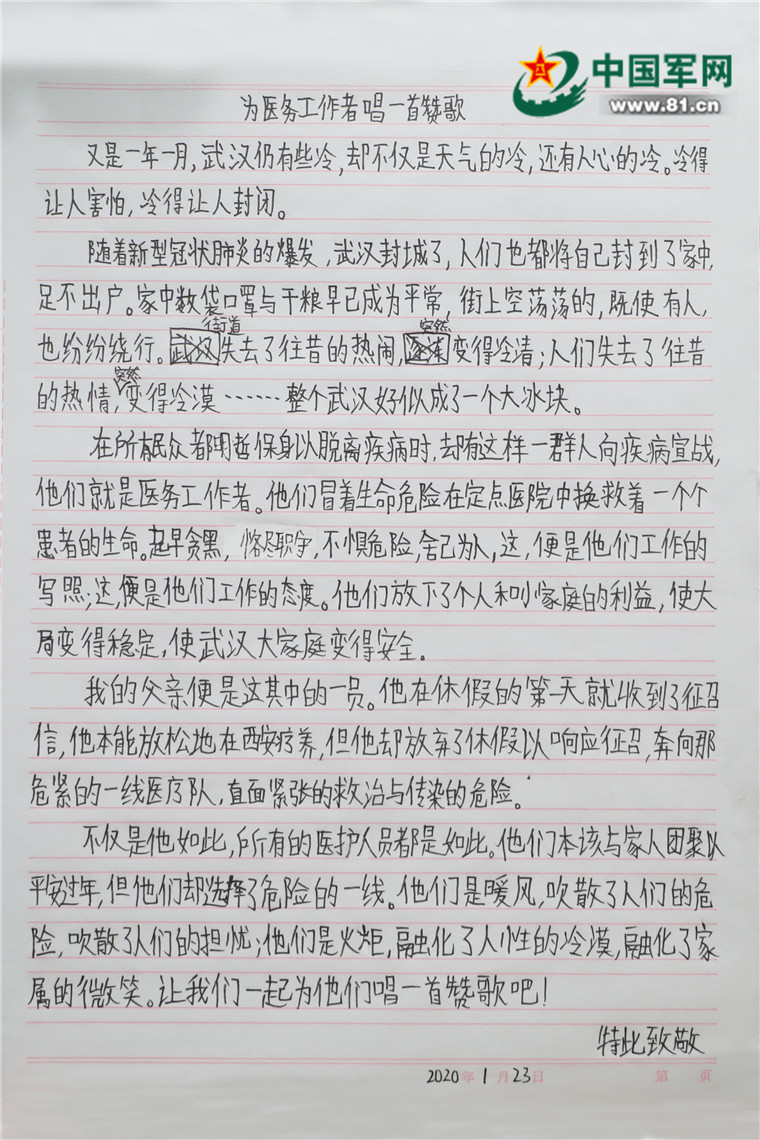 中国军网
www.81.cn
为医务工作者唱一首赞歌
又是一年一月,武汉仍有些冷,却不仅是天气的冷,还有人心的冷。冷得
让人害怕,冷得让人封闭。
随着新型冠状肺炎的爆发,武汉封城了,人们也都将自己封到了家中,
足不出户。家中数袋口罩与干粮早已成为平常,街上空荡荡的,既使有人,
街道 突然
也纷纷绕行。武汉失去了往昔的热闹,逐渐变得冷清;人们失去了往昔
突然
的热情,变得冷漠……整个武汉好似成了一个大冰块。
在所有民众都明哲保身以脱离疾病时,却有这样一群人向疾病宣战,
他们就是医务工作者。他们冒着生命危险在定点医院中换救着一个个
患者的生命。起早贪黑,恪尽职守,不惧危险,舍己为人,这,便是他们工作的
写照;这,便是他们工作的态度。他们放下了个人和小家庭的利益,使大
局变得稳定,使武汉大家庭变得安全。
我的父亲便是这其中的一员。他在休假的第一天就收到了征召
信,他本能放松地在西安疗养,但他却放弃了休假以响应征召,奔向那
危紧的一线医疗队,直面紧张的救治与传染的危险。
不仅是他如此,所有的医护人员都是如此。他们本该与家人团聚以
平安过年,但他们却选择了危险的一线。他们是暖风,吹散了人们的危
险,吹散了人们的担忧;他们是火炬,融化了人性的冷漠,融化了家
属的微笑。让我们一起为他们唱一首赞歌吧!
特此致敬
2020年1月23日 第 页